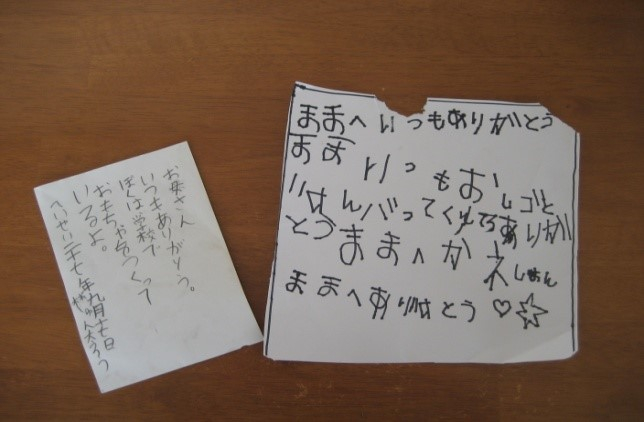 お母さん
いつもありがとう。
ぼくは学校で
おもちゃお気つくって
いるよ。
へいせい二十七年九月十七日
ままへいつもありがとう
まま いつもおしごと
がんバってくれてありが
とう ままへ
ままへありがとう♡☆